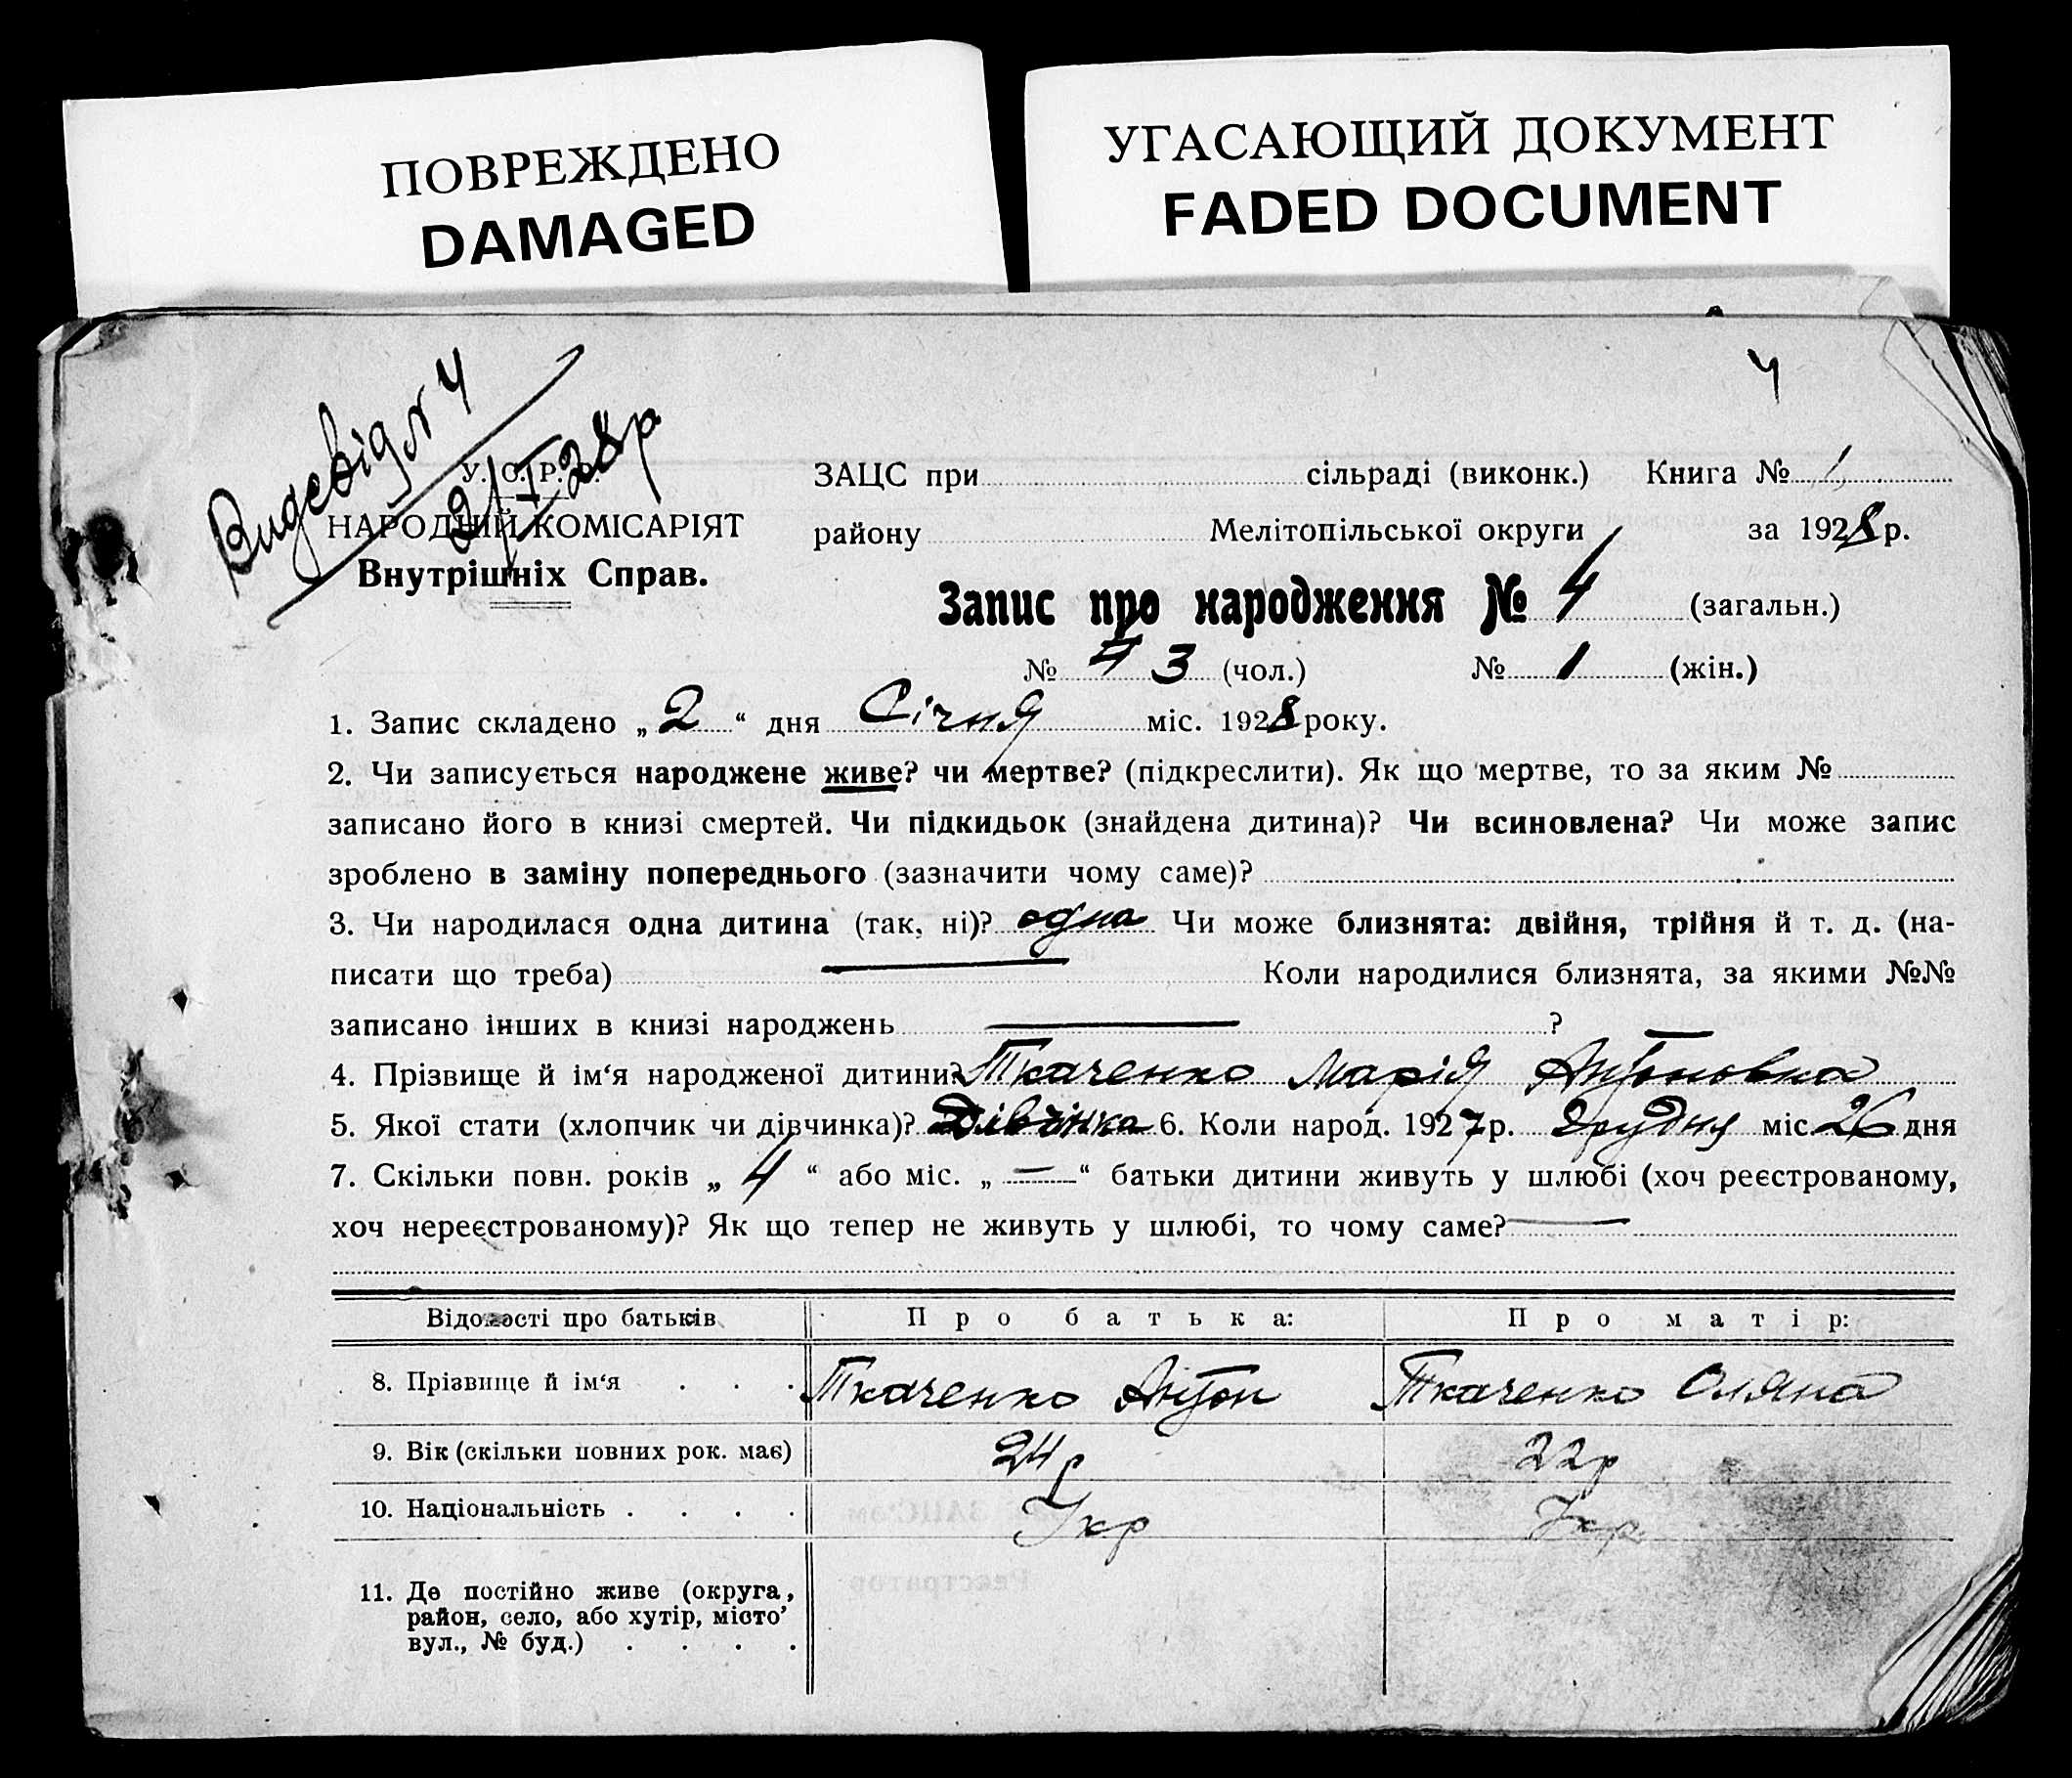 ПОВРЕЖДЕНО
DAMAGED
УГАСАЮЩИЙ ДОКУМЕНТ
FADED DOCUMENT
4
Видсвід N 4
2/I 28р
У. С. Р. Р.
НАРОДНІЙ КОМІСАРІЯТ
Внутрішніх Справ.
ЗАЦС при сільраді (виконк.) Книга № 1
району Мелітопільської округи за 1928 р.
Запис про народження № 4 (загальн.)
№ 3 (чол.) № 1 (жін.)
1. Запис складено „ 2 “ дня Січня міс. 1928 року.
2. Чи записується народжене живе? чи мертве? (підкреслити). Як що мертве, то за яким №
записано його в книзі смертей. Чи підкидьок (знайдена дитина)? Чи всиновлена? Чи може запис
зроблено в заміну попереднього (зазначити чому саме)?
3. Чи народилася одна дитина (так, ні)? одна Чи може близнята: двійня, трійня й т. д. (на-
писати що треба) — Коли народилися близнята, за якими №№
записано інших в книзі народжень — ?
4. Прізвище й ім‘я народженої дитини? Ткаченко Марія Антоновна
5. Якої стати (хлопчик чи дівчинка)? Дівчінка 6. Коли народ. 1927 р. Грудня міс 26 дня
7. Скільки повн. років „ 4 “ або міс. „ — “ батьки дитини живуть у шлюбі (хоч реєстрованому,
хоч нереєстрованому)? Як що тепер не живуть у шлюбі, то чому саме? —
Відомості про батьків Про батька: Про матір:
8. Прізвище й ім‘я . . . Ткаченко Антон Ткаченко Оляна
9. Вік (скільки повних рок. має) 24 р 22 р
10. Національність . . . . Укр Укр
11. Де постійно живе (округа,
район, село, або хутір, місто’
вул., № буд.) . . . .